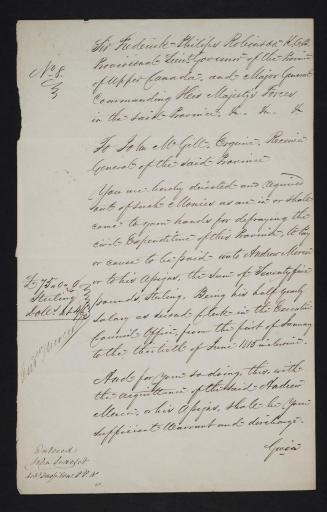 No. 8.
Sir Frederick Philips Robinson K.C.B.
Provisional Lieut. Governor of the Province
of Upper Canada, and Major General
Commanding His Majesty's Forces
in the said Province, &c. &c. &c
To John McGill, Esquire, Receiver
General of the said Province
You are hereby directed and required
out of such Monies as are in or shall
come to your hands for defraying the
Civil Expenditure of this Province, to Pay
or cause to be paid unto Andrew Mercer
or to his Assigns, the sum of Seventy five
pounds Sterling, Being his half yearly
salary as second Clerk in the Executive
Council Office, from the first of January
to the thirtieth of June 1815 inclusive.
And for your so doing, this, with
the acquittance of the said Andrew
Mercer, or his Assigns, shall be your
sufficient Warrant and discharge.
Given
£75.0.0
Sterling
Andw Mercer
Entered
John